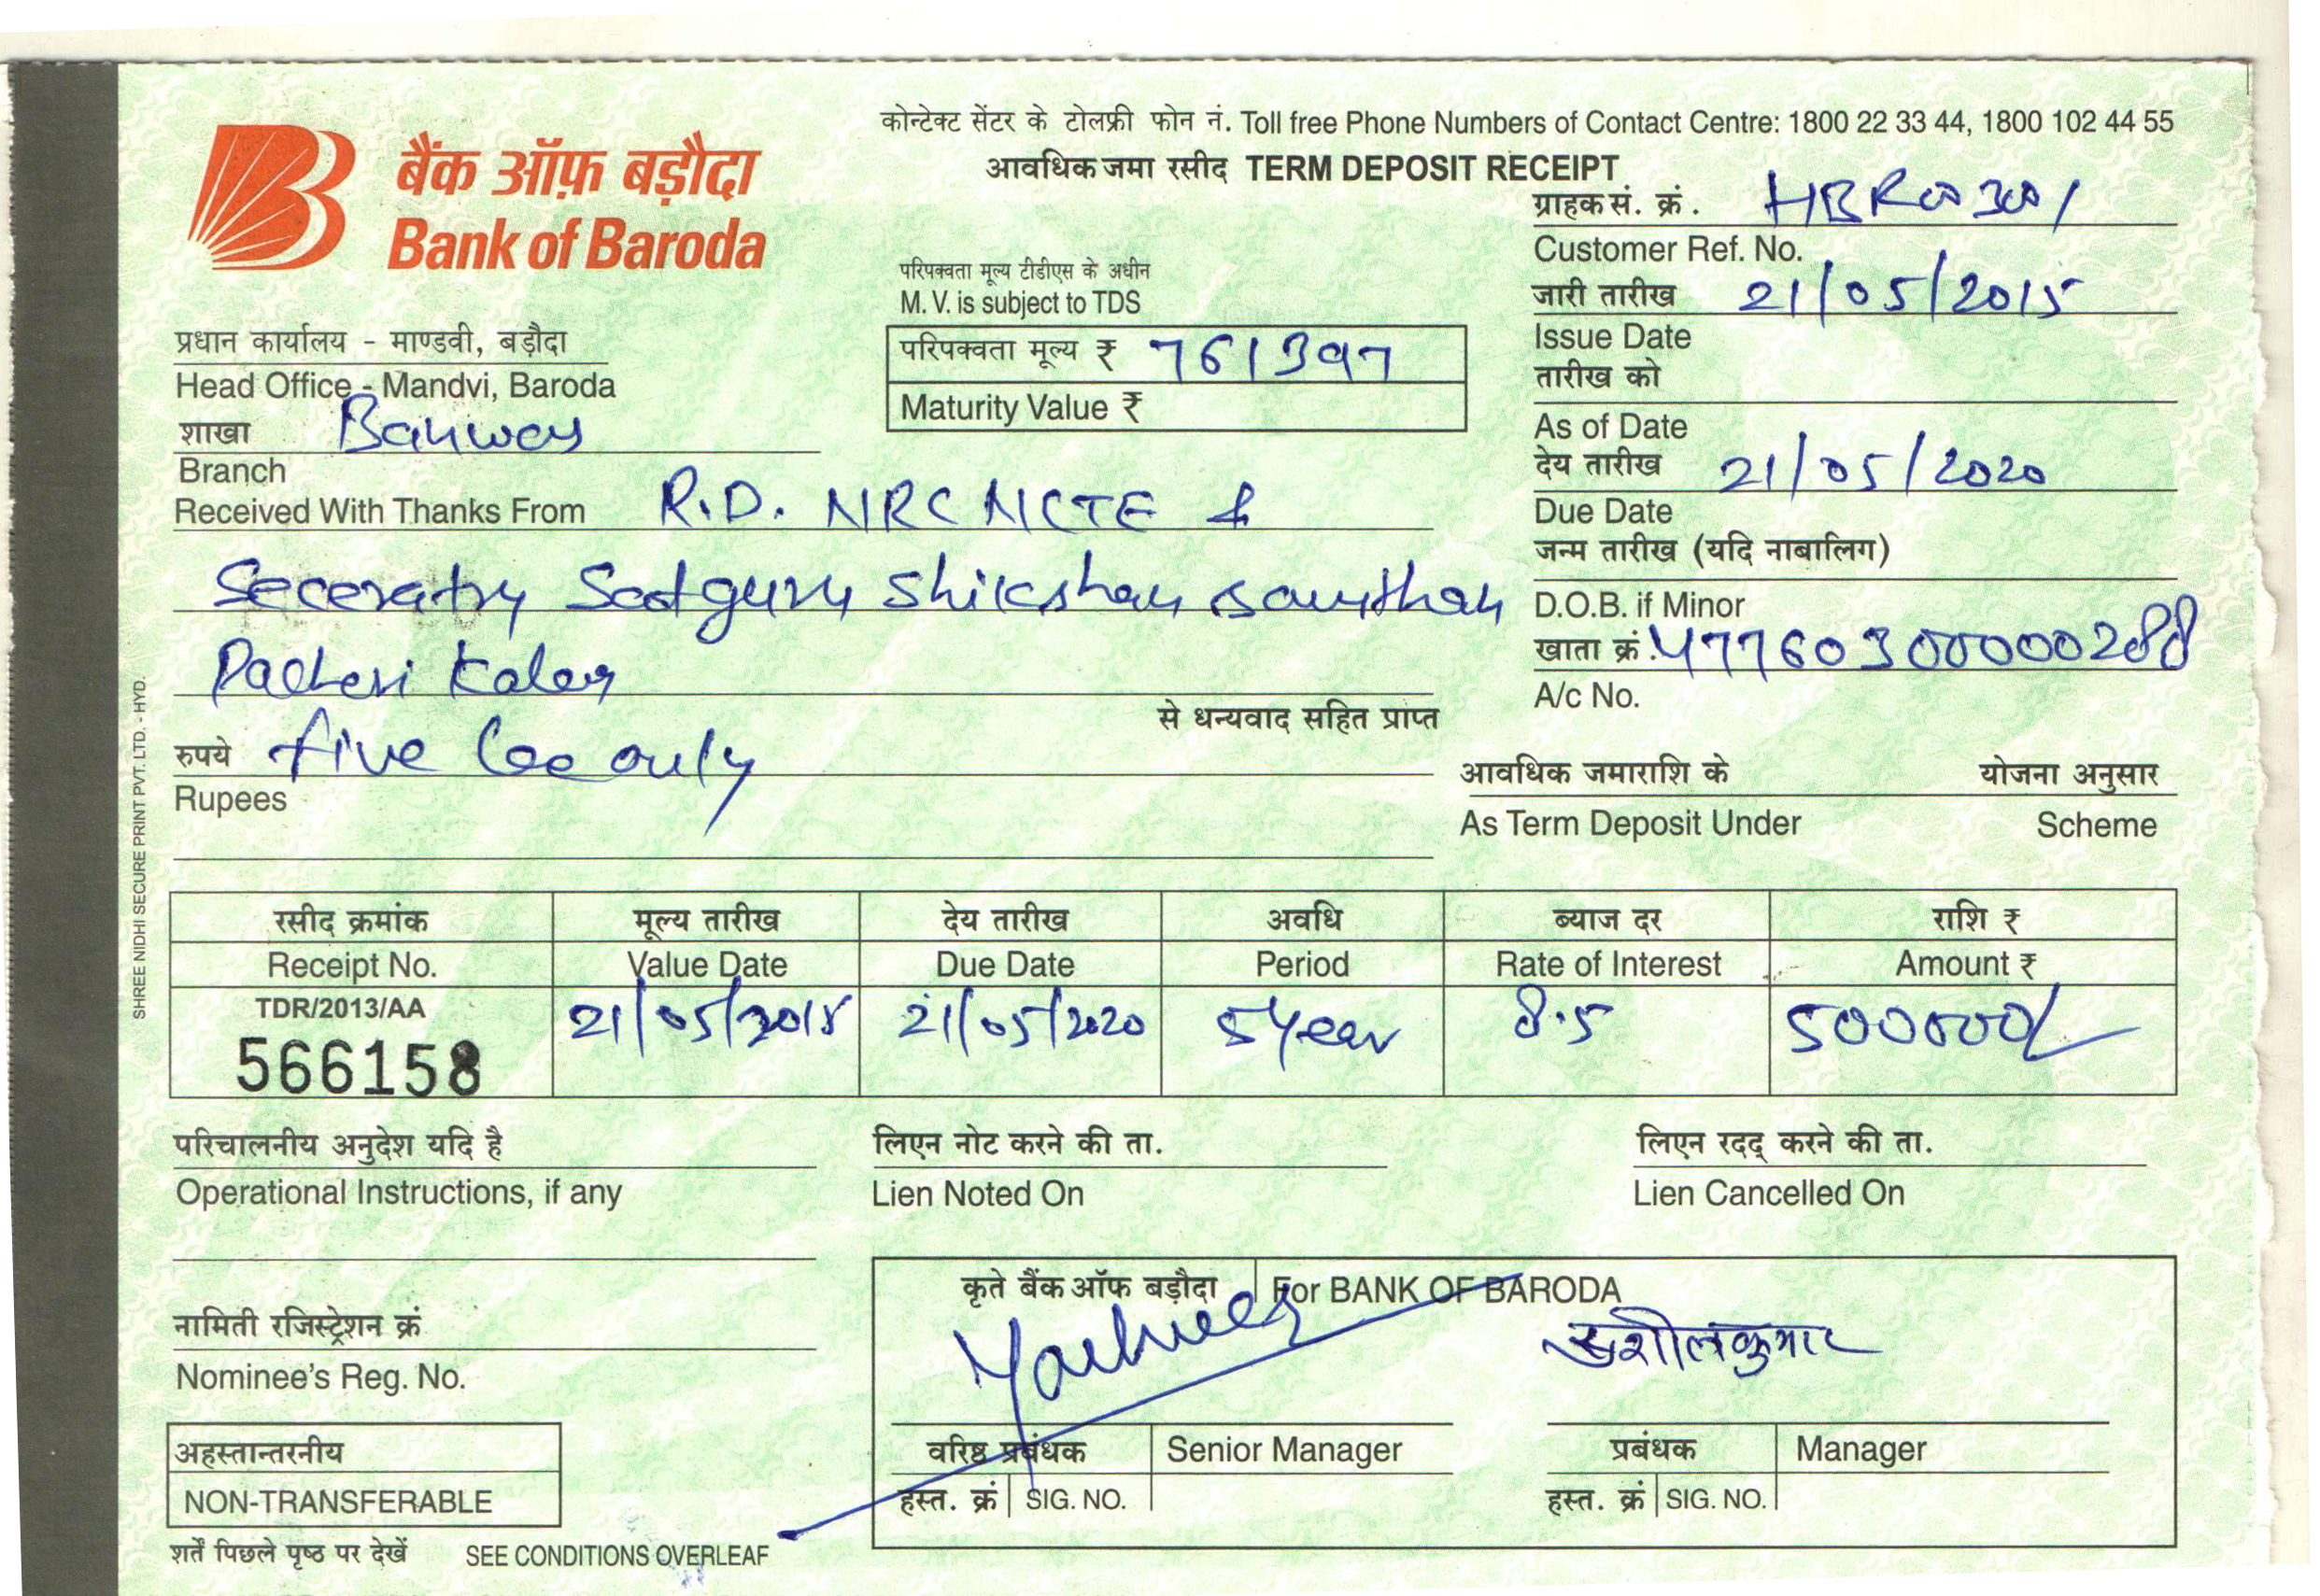 कोन्टेक्ट सेंटर के टोलफ्री फोन नं. Toll free Phone Numbers of Contact Centre: 1800 22 33 44, 1800 102 44 55
बैंक ऑफ़ बड़ौदा
Bank of Baroda
आवधिक जमा रसीद TERM DEPOSIT RECEIPT
ग्राहक सं. क्रं. HBR00301
Customer Ref. No.
परिपक्वता मूल्य टीडीएस के अधीन
M. V. is subject to TDS
जारी तारीख 21/05/2015
Issue Date
प्रधान कार्यालय - माण्डवी, बड़ौदा
Head Office - Mandvi, Baroda
परिपक्वता मूल्य ₹ 761397
Maturity Value ₹
तारीख को
As of Date
शाखा
Branch
देय तारीख 21/05/2020
Due Date
Received With Thanks From R.D. NRC NCTE &
जन्म तारीख (यदि नाबालिग)
D.O.B. if Minor
Seceratry Satguru Shikshan Sansthan
खाता क्रं. 47760300000288
A/c No.
Pacheri Kalan
से धन्यवाद सहित प्राप्त
रुपये five lac only
Rupees
आवधिक जमाराशि के योजना अनुसार
As Term Deposit Under Scheme
SHREE NIDHI SECURE PRINT PVT. LTD. - HYD.
रसीद क्रमांक मूल्य तारीख देय तारीख अवधि ब्याज दर राशि ₹
Receipt No. Value Date Due Date Period Rate of Interest Amount ₹
TDR/2013/AA
566158 21/05/2015 21/05/2020 5 year 8.5 500000/
परिचालनीय अनुदेश यदि है लिएन नोट करने की ता. लिएन रदद् करने की ता.
Operational Instructions, if any Lien Noted On Lien Cancelled On
कृते बैंक ऑफ बड़ौदा For BANK OF BARODA
नामिती रजिस्ट्रेशन क्रं
Nominee's Reg. No.
सुशीलकुमार
वरिष्ठ प्रबंधक Senior Manager प्रबंधक Manager
हस्त. क्रं SIG. NO. हस्त. क्रं SIG. NO.
अहस्तान्तरनीय
NON-TRANSFERABLE
शर्तें पिछले पृष्ठ पर देखें SEE CONDITIONS OVERLEAF